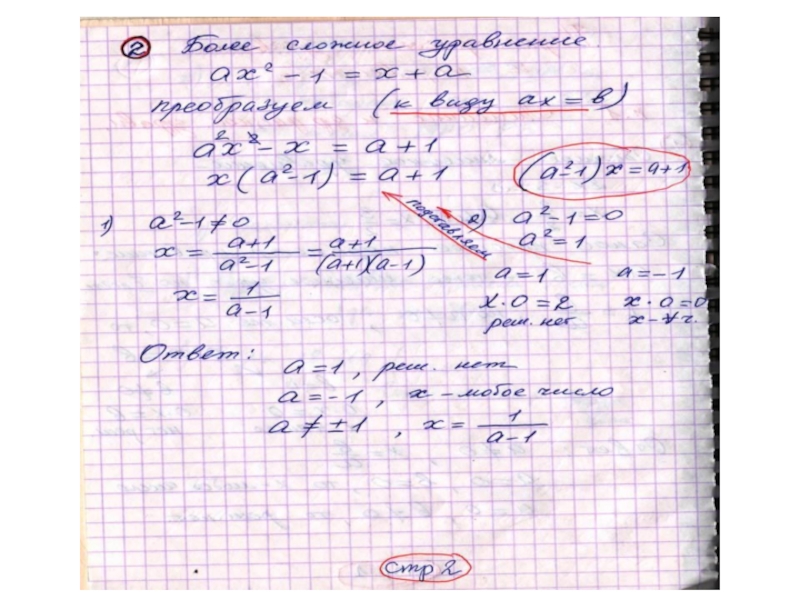 2 Более сложное уравнение.
ax² - 1 = x + a
преобразуем (к виду ax = в)
a²x - x = a + 1
x(a² - 1) = a + 1
(a²-1)x = a+1
подставляем
1) a² - 1 ≠ 0
x = a+1 / a²-1 = a+1 / (a+1)(a-1)
x = 1 / a-1
2) a² - 1 = 0
a² = 1
a = 1 a = -1
x · 0 = 2 x · 0 = 0
реш. нет x - ∀ ч.
Ответ:
a = 1, реш. нет
a = -1, x - любое число
a ≠ ±1, x = 1 / a-1
Стр 2